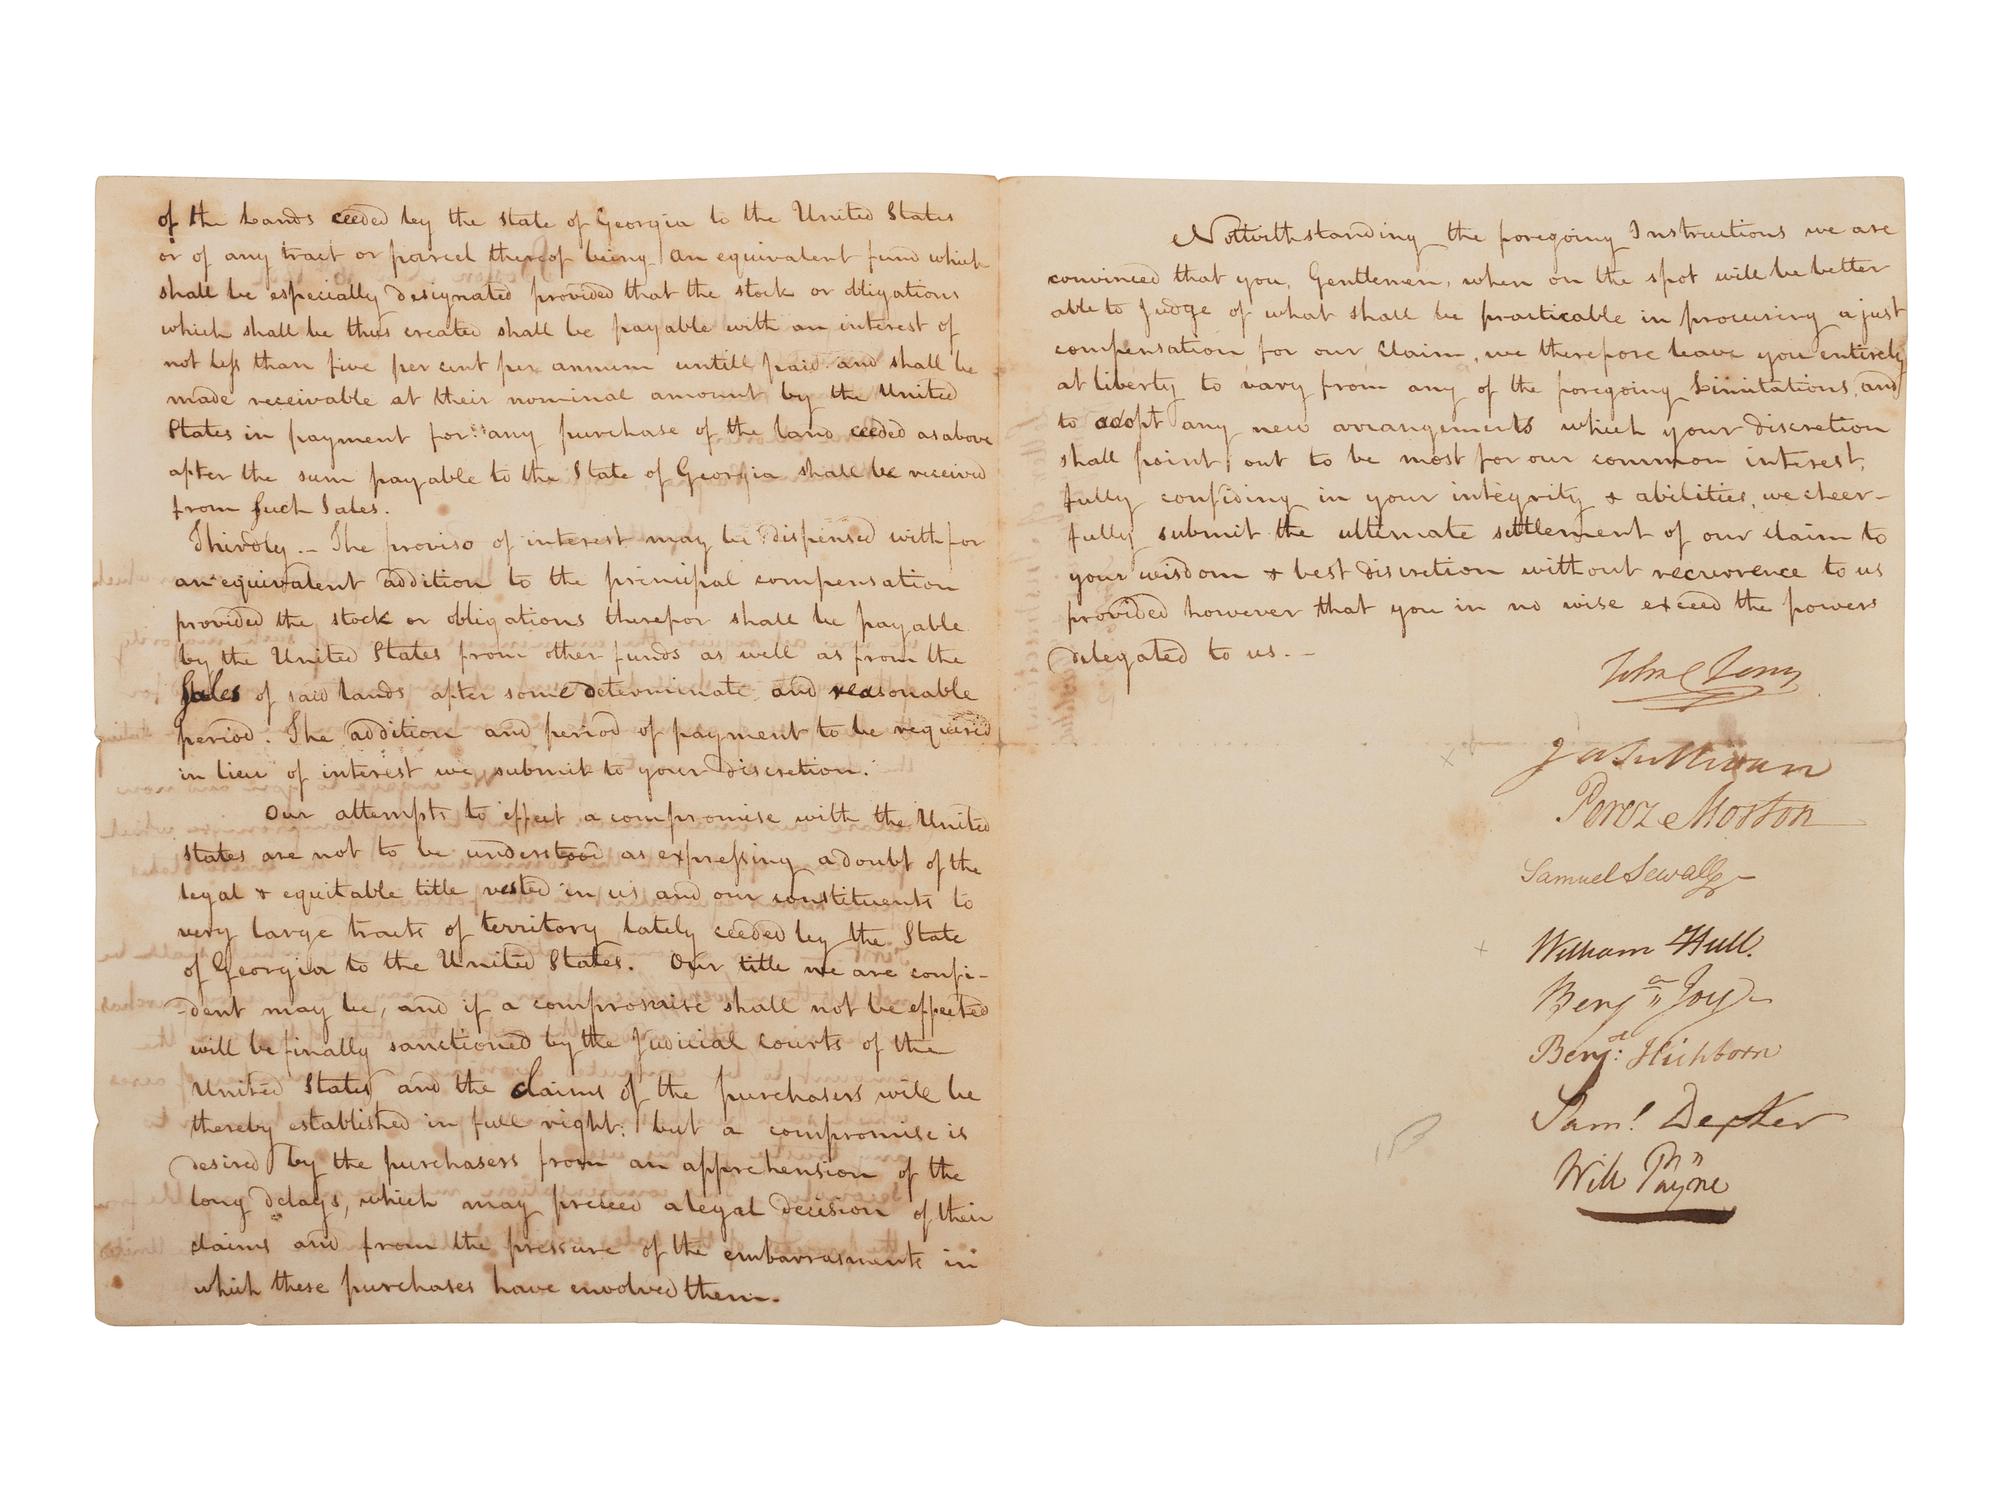 of the Lands ceeded by the State of Georgia to the United States
or of any tract or parcel thereof being an equivalent fund which
shall be especially designated provided that the stock or obligations
which shall be thus created shall be payable with an interest of
not less than five per cent per annum untill paid and shall be
made receivable at their nominal amount by the United
States in payment for any purchase of the land ceeded as above
after the sum payable to the State of Georgia shall be received
from such Sales.
Thirdly.— The proviso of interest may be dispensed with for
an equivalent addition to the principal compensation
provided the stock or obligations therefor shall be payable
by the United States from other funds as well as from the
Sales of said lands after some determinate and reasonable
period. The addition and period of payment to be required
in lieu of interest we submit to your discretion.
Our attempts to effect a compromise with the United
States are not to be understood as expressing a doubt of the
legal & equitable title vested in us and our constituents to
very large tracts of territory lately ceeded by the State
of Georgia to the United States. Our title we are confi-
-dent may be, and if a compromise shall not be effected
will be finally sanctioned by the Judicial courts of the
United States and the claims of the purchasers will be
thereby established in full right: but a compromise is
desired by the purchasers from an apprehension of the
long delays, which may preceed a legal decision of their
claims and from the pressure of the embarrasments in
which these purchases have envolved them.
Nottwithstanding the foregoing Instructions we are
convinced that you, Gentlemen, when on the spot will be better
able to Judge of what shall be practicable in procuring a just
compensation for our Claim, we therefore leave you entirely
at liberty to vary from any of the foregoing Limitations, and
to adopt any new arrangements which your discretion
shall point out to be most for our common interest,
fully confiding in your integrity & abilities, we cheer-
fully submit the ultimate settlement of our claim to
your wisdom & best discretion without recurrence to us
provided however that you in no wise exceed the powers
delegated to us.—
Jno C Jones
Ja Sullivan
Perez Morton
Samuel Sewall
William Hull.
Benja Joy
Benj: Hichborn
Saml Dexter
Will Payne